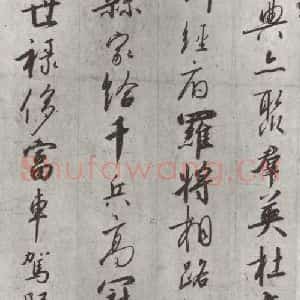 典亦聚羣英杜
經府羅將相路
縣家給千兵高冠
世祿侈富車駕
Shufawang.cn